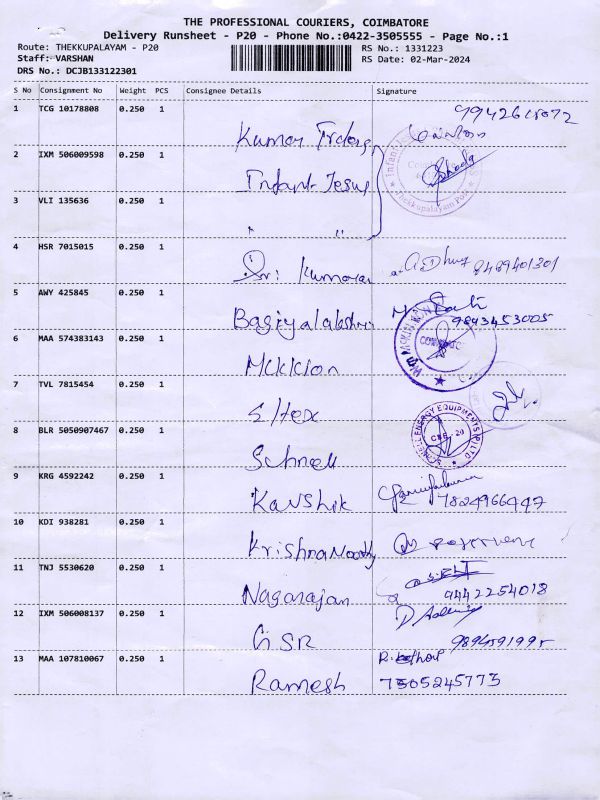 THE PROFESSIONAL COURIERS, COIMBATORE
Delivery Runsheet - P20 - Phone No.:0422-3505555 - Page No.:1
Route: THEKKUPALAYAM - P20 RS No.: 1331223
Staff: VARSHAN RS Date: 02-Mar-2024
DRS No.: DCJB133122301
S No Consignment No Weight PCS Consignee Details Signature
1 TCG 10178808 0.250 1 Kumar
2 IXM 506009598 0.250 1 Infant Jesus
3 VLI 135636 0.250 1 " "
4 HSR 7015015 0.250 1 Sri Kumaran 8489401301
5 AWY 425845 0.250 1 9843453005
6 MAA 574383143 0.250 1
7 TVL 7815454 0.250 1 Eltex
8 BLR 5050907467 0.250 1 Schnell SCHNELL ENERGY EQUIPMENTS (P) LTD CBE - 20
9 KRG 4592242 0.250 1 Kavshik 7824966447
10 KDI 938281 0.250 1 Krishnamoorthy
11 TNJ 5530620 0.250 1 Nagarajan 9442254018
12 IXM 506008137 0.250 1 GSR
13 MAA 107810067 0.250 1 Ramesh